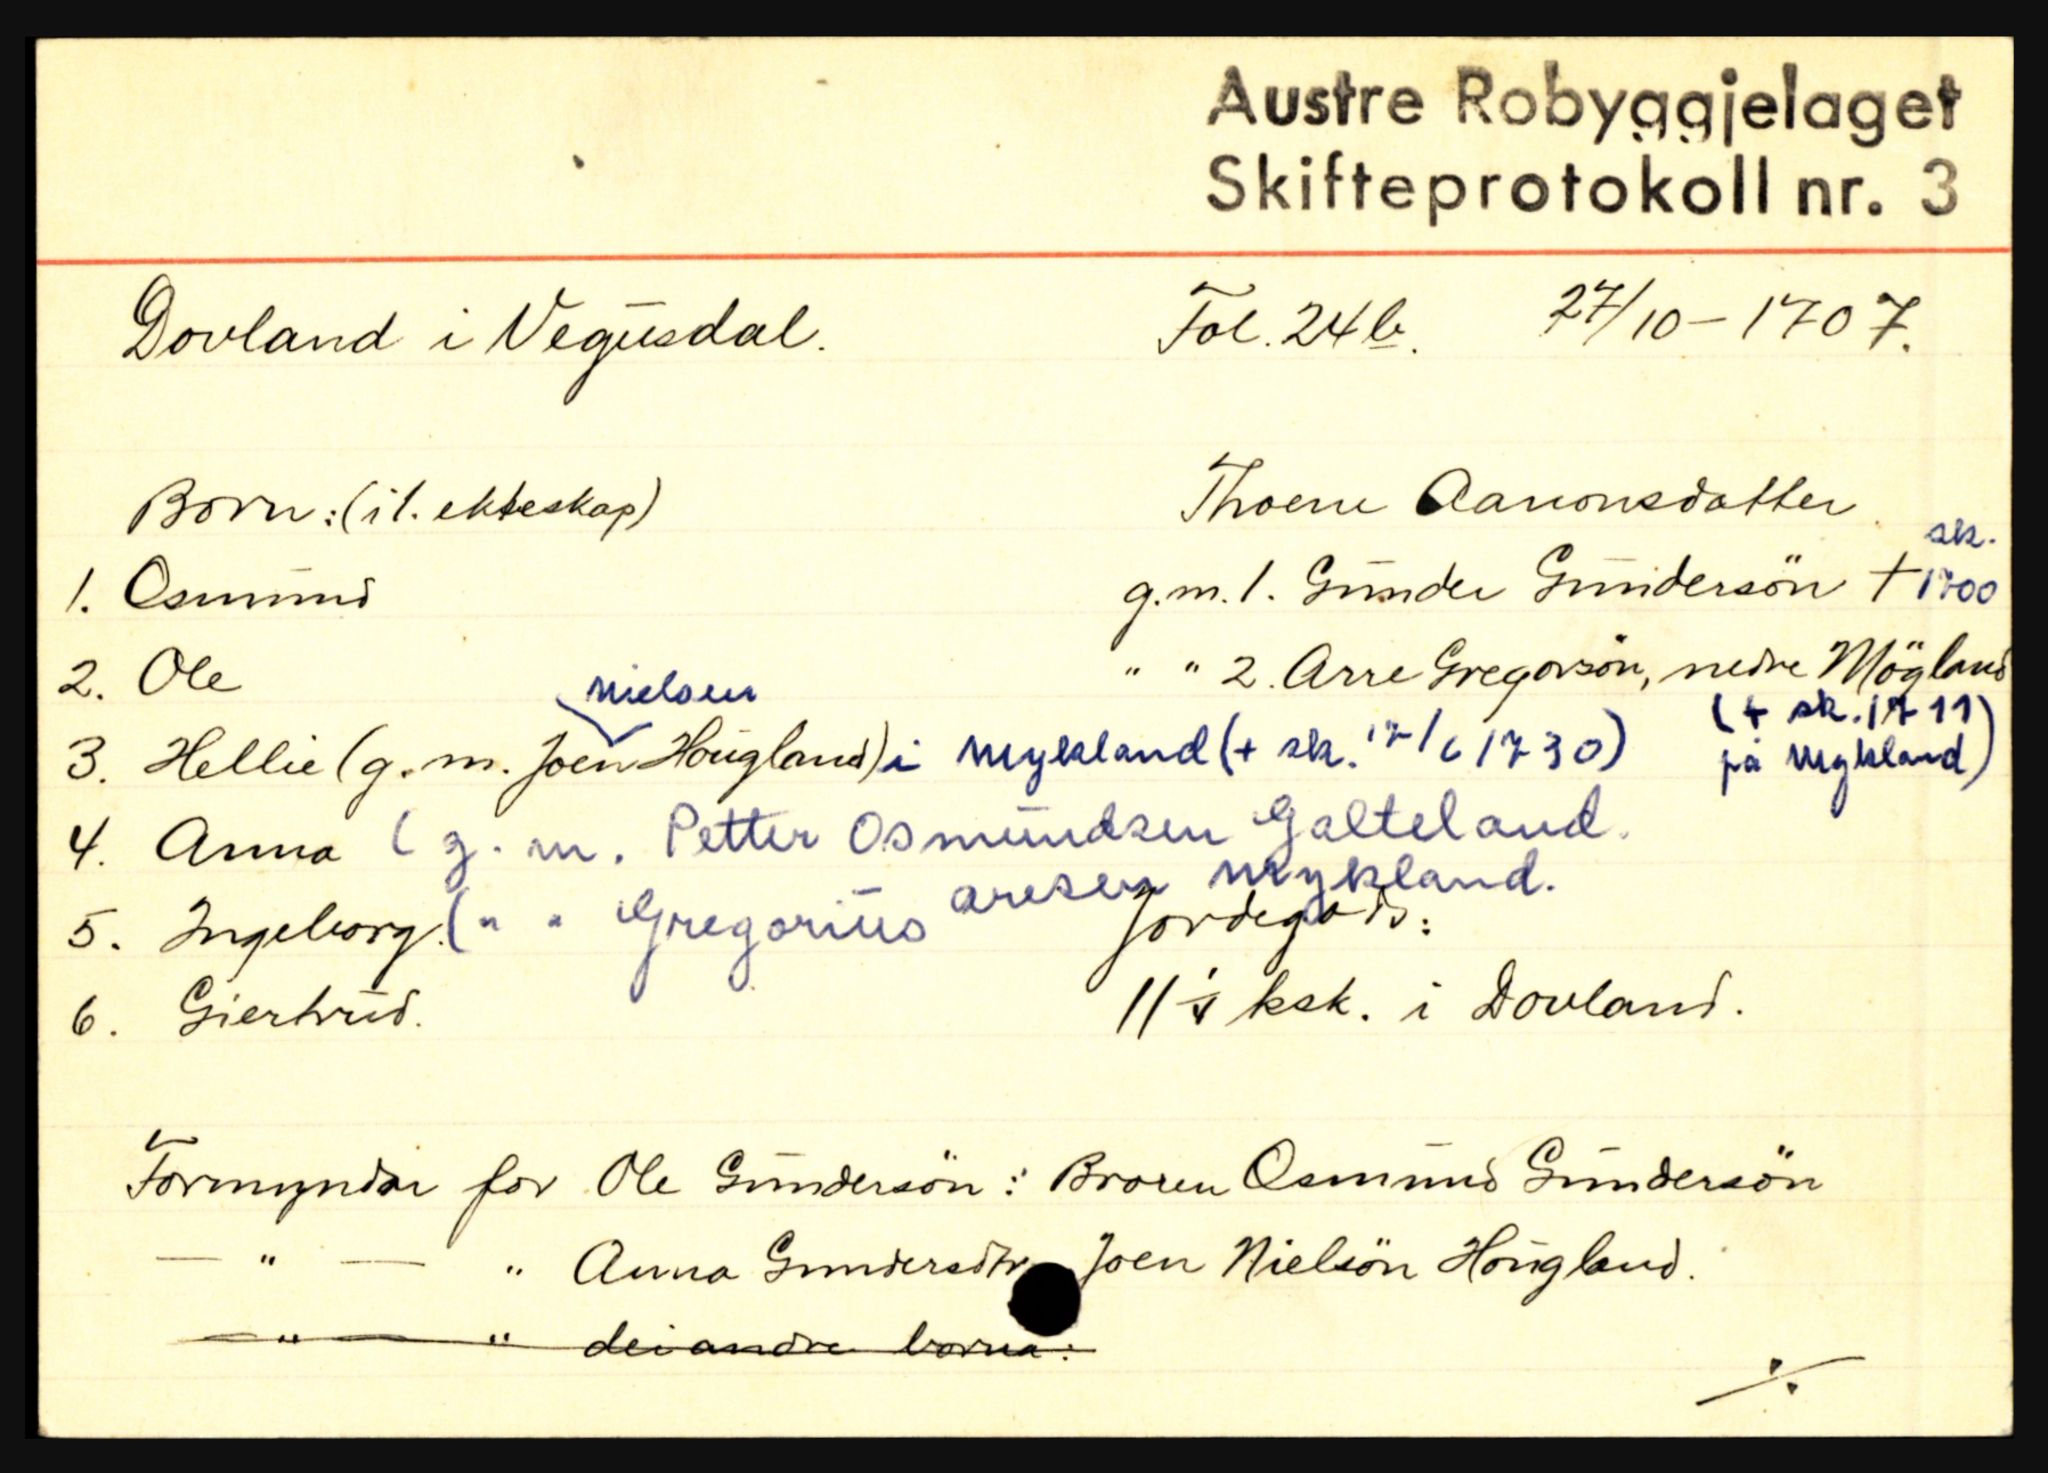 Austre Robyggjelaget
Skifteprotokoll nr. 3
Dovland i Vegusdal. Fol. 24b. 27/10-1707.
Born: (i 1. ekteskap) Thoene Aanonsdatter
1. Osmund g.m. 1. Gunder Gundersön † sk. 1700
2. Ole " " 2. Arre Gregorsön, nedre Mögland
(+ sk. 1711 på Mykland)
3. Hellie (g.m. Joen Nielsen Hougland) i Mykland (+ sk. 17/6 1730)
4. Anna (g.m. Petter Osmundsen Galteland.
5. Ingeborg. (" " Gregorius Aresen Mykland.
Jordegods:
6. Giertrud. 11 1/4 ksk. i Dovland.
Formyndar for Ole Gundersön: Broren Osmund Gundersön
— " — " Anna Gundersdtr Joen Nielsön Hougland.
— " — " dei andre borna:
./.